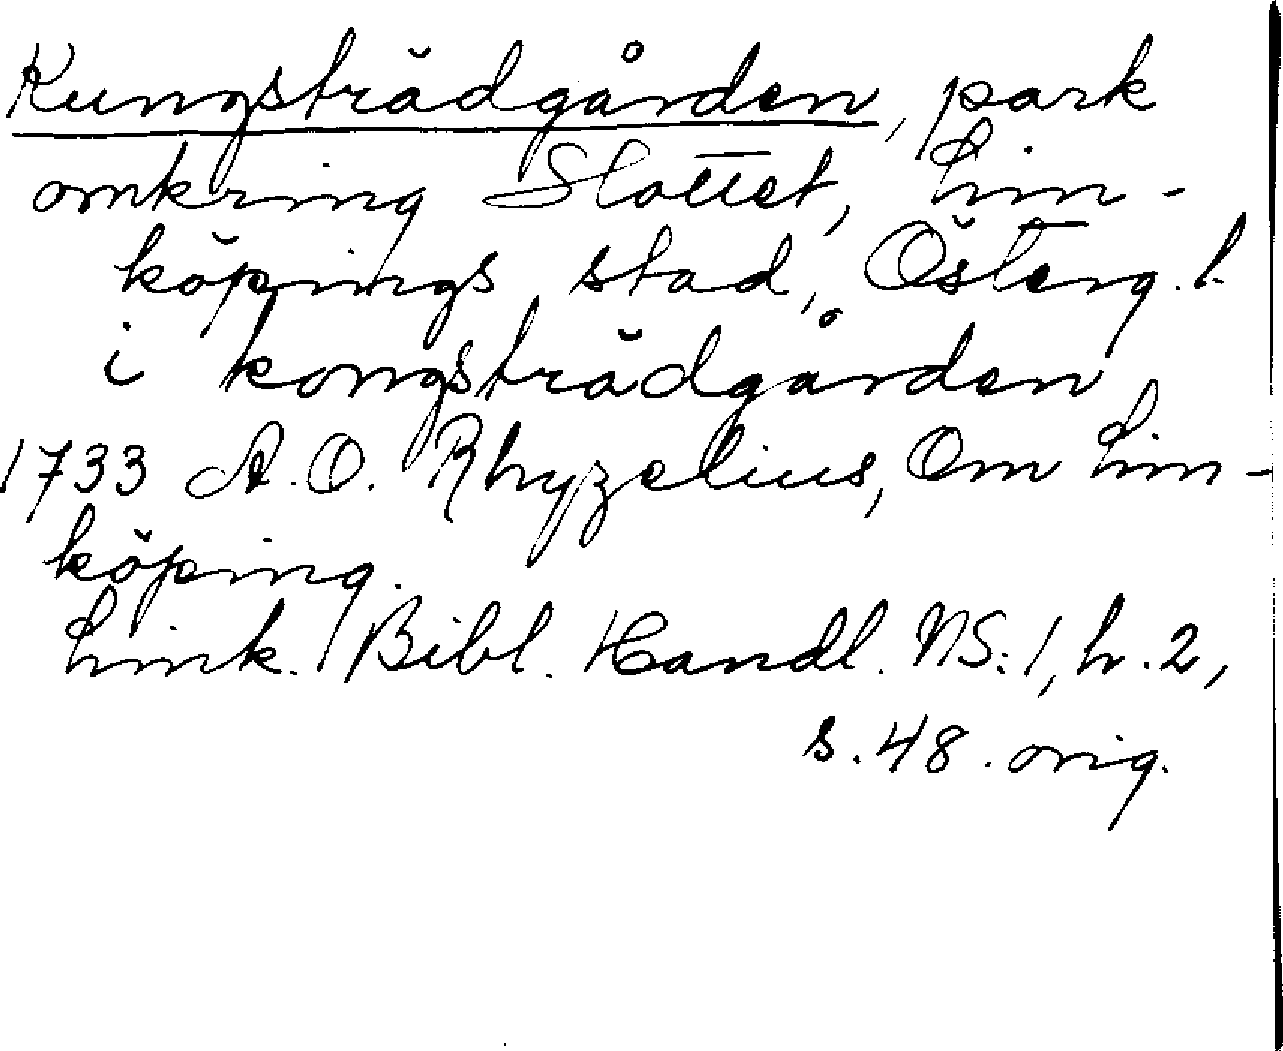 Kungsträdgården, park
omkring Slottet, Lin-
köpings stad, Österg.l.
i kongsträdgården
1733 A.O. Rhyzelius, Om Lin-
köping.
Link. Bibl. Handl. NS:1, h.2,
s.48. orig.